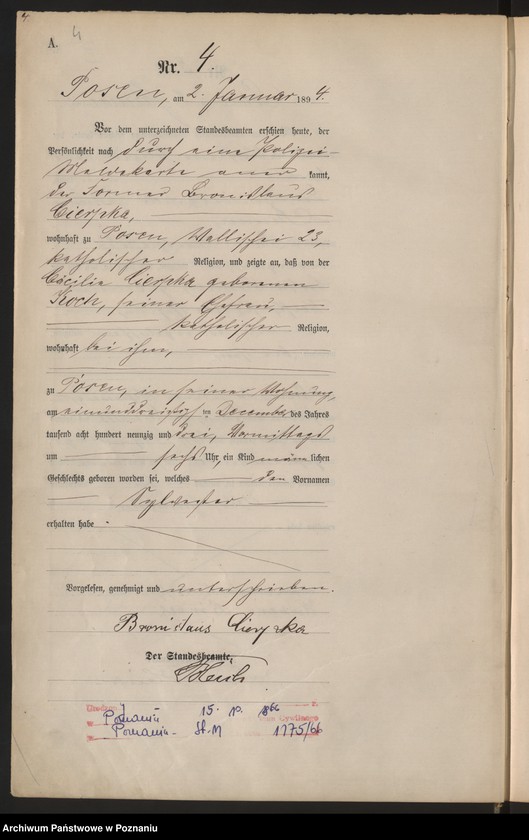 A. 4
Nr. 4.
Posen, am 2. Januar 1894.
Vor dem unterzeichneten Standesbeamten erschien heute, der
Persönlichkeit nach durch eine Polizei-
Meldekarte aner kannt,
der Former Bronislaus
Cierpka,
wohnhaft zu Posen, Wallischei 23,
katholischer Religion, und zeigte an, daß von der
Cäcilie Cierpka geborenen
Koch, seiner Ehefrau,
katholischer Religion,
wohnhaft bei ihm,
zu Posen, in seiner Wohnung,
am einunddreißigsten December des Jahres
tausend acht hundert neunzig und drei, Vormittags
um sechs Uhr, ein Kind männlichen
Geschlechts geboren worden sei, welches den Vornamen
Sylvester
erhalten habe
Vorgelesen, genehmigt und unterschrieben.
Bronislaus Cierpka
Der Standesbeamte,
15. 10. 866
Poznaniu
Poznania- St. M 1175/66
Archiwum Państwowe w Poznaniu